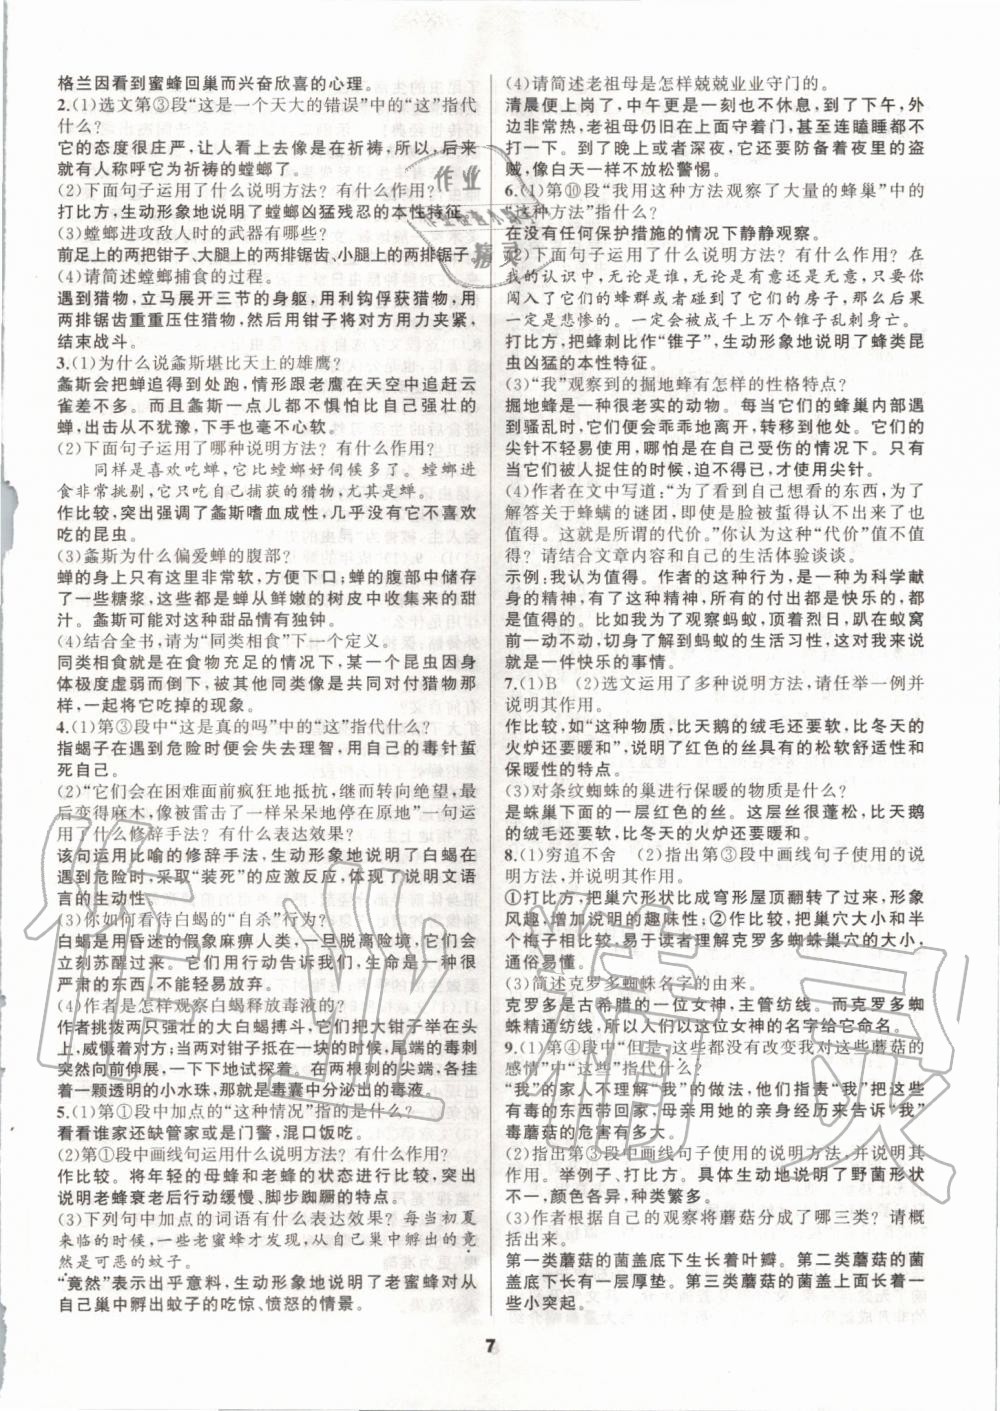 格兰因看到蜜蜂回巢而兴奋欣喜的心理。
2.(1)选文第③段“这是一个天大的错误”中的“这”指代
什么?
它的态度很庄严,让人看上去像是在祈祷,所以,后来
就有人称呼它为祈祷的螳螂了。
(2)下面句子运用了什么说明方法? 有什么作用?
打比方,生动形象地说明了螳螂凶猛残忍的本性特征。
(3)螳螂进攻敌人时的武器有哪些?
前足上的两把钳子、大腿上的两排锯子、小腿上的两排锯子。
(4)请简述螳螂捕食的过程。
遇到猎物,立马展开三节的身躯,用利钩俘获猎物,用
两排锯齿重重压住猎物,然后用钳子将对方用力夹紧,
结束战斗。
3.(1)为什么说螽斯堪比天上的雄鹰?
螽斯会把蝉追得到处跑,情形跟老鹰在天空中追赶云
雀差不多。而且螽斯一点儿都不惧怕比自己强壮的
蝉,出击从不犹豫,下手也毫不心软。
(2)下面句子运用了哪种说明方法? 有什么作用?
同样是喜欢吃蝉,它比螳螂好伺候多了。螳螂进
食非常挑剔,它只吃自己捕获的猎物,尤其是蝉。
作比较,突出强调了螽斯嗜血成性,几乎没有它不喜欢
吃的昆虫。
(3)螽斯为什么偏爱蝉的腹部?
蝉的身上只有这里非常软,方便下口;蝉的腹部中储存
了一些糖浆,这些都是蝉从鲜嫩的树皮中收集来的甜
汁。螽斯可能对这种甜品情有独钟。
(4)结合全书,请为“同类相食”下一个定义。
同类相食就是在食物充足的情况下,某一个昆虫因身
体极度虚弱而倒下,被其他同类像是共同对付猎物那
样,一起将它吃掉的现象。
4.(1)第③段中“这是真的吗”中的“这”指代什么?
指蝎子在遇到危险时便会失去理智,用自己的毒针蜇
死自己。
(2)“它们会在困难面前疯狂地抵抗,继而转向绝望,最
后变得麻木,像被雷击了一样呆呆地停在原地”一句运
用了什么修辞手法? 有什么表达效果?
该句运用比喻的修辞手法,生动形象地说明了白蝎在
遇到危险时,采取“装死”的应激反应,体现了说明文语
言的生动性。
(3)你如何看待白蝎的“自杀”行为?
白蝎是用昏迷的假象麻痹人类,一旦脱离险境,它们会
立刻苏醒过来。它们用行动告诉我们,生命是一种很
严肃的东西,不能轻易放弃。
(4)作者是怎样观察白蝎释放毒液的?
作者挑拨两只强壮的大白蝎搏斗,它们将大钳子举在头
上,威慑着对方;当两对钳子抵在一块的时候,尾端的毒刺
突然向前伸展,一下一下地试探着。在两根刺的尖端,挂
着一颗透明的小水珠,那就是毒囊中分泌出的毒液。
5.(1)第①段中加点的“这种情况”指的是什么?
看看谁家还缺管家或是门警,混口饭吃。
(2)第①段中画线句运用什么说明方法? 有什么作用?
作比较。将年轻的母蜂和老蜂的状态进行比较,突出
说明老蜂衰老后行动缓慢、脚步踟蹰的特点。
(3)下列句中加点的词语有什么表达效果? 每当初夏
来临的时候,一些老蜜蜂才发现,从自己巢中孵出的竟
然是可恶的蚊子。
“竟然”表示出乎意料,生动形象地说明了老蜜蜂对从
自己巢中孵出蚊子的吃惊、愤怒的情景。
(4)请简述老祖母是怎样兢兢业业守门的。
清晨便上岗了,中午更是一刻也不休息,到了下午,外
边非常热,老祖母仍旧在上面守着门,甚至连瞌睡都不
打一下。到了晚上或者深夜,它还要防备着夜里的盗
贼,像白天一样不放松警惕。
6.(1)第⑩段“我用这种方法观察了大量的蜂巢”中的
“这种方法”指什么?
在没有任何保护措施的情况下静静观察。
(2)下面句子运用了什么说明方法? 有什么作用? 在
我的认识中,无论是谁,无论是有意还是无意,只要是
闯入了它们的蜂群或者碰到了它们的房子,那么后果
一定是悲惨的。一定会被成千上万个锥子乱刺身亡。
打比方,把蜂刺比作“锥子”,生动形象地说明了蜂类昆
虫凶猛的本性特征。
(3)“我”观察到的掘地蜂有怎样的性格特点?
掘地蜂是一种很老实的动物。每当它们的蜂巢内部遇
到骚乱时,它们便会乖乖地离开,转移到他处。它们的
尖针不轻易使用,除非在自己受伤的情况下才会用。
当它们被人捉住的时候,迫不得已,才使用尖针。
(4)作者在文中写道:“为了看到自己想看的东西,为了
解答关于蜂螨的谜团,即使是脸被蜇得认不出来了也
值得。这就是所谓的代价。”你认为这种“代价”值不值
得? 请结合文章内容和自己的生活体验谈谈。
示例:我认为值得。作者的这种行为,是一种为科学献
身的精神,有了这种精神,所有的付出都是快乐的,都
是值得的。比如我为了观察蚂蚁,顶着烈日,趴在蚁窝
前一动不动,切身了解到了蚂蚁的生活习性,这对我来
说就是一件快乐的事情。
7.(1)B (2)选文运用了多种说明方法,请任举一例并
说明其作用。
作比较,如“这种物质,比天鹅的绒毛还要软,比冬天的
火炉还要暖和”,说明了红色的丝具有的松软舒适性和
保暖性的特点。
(3)对条纹蜘蛛的巢进行保暖的物质是什么?
是蛛巢下面的一层红色的丝。这层丝很蓬松,比天鹅
的绒毛还要软,比冬天的火炉还要暖和。
8.(1)穷追不舍 (2)指出第③段中画线句子使用的说
明方法,并说明其作用。
①打比方,把巢穴形状比成穹形屋顶翻转了过来,形象
风趣,增加说明的趣味性;②作比较,把巢穴大小和半
个梅子相比较,易于读者理解克罗多蜘蛛巢穴的大小,
通俗易懂。
(3)简述克罗多蜘蛛名字的由来。
克罗多是古希腊的一位女神,主管纺线。而克罗多蜘
蛛精通纺线,所以人们以这位女神的名字给它命名。
9.(1)第④段中“但是,这些都没有改变我对这些蘑菇的
感情”中“这些”指代什么?
“我”的家人不理解“我”的做法,他们指责“我”把这些
有毒的东西带回家,母亲用她的亲身经历来告诉“我”
毒蘑菇的危害有多大。
(2)指出第③段中画线句子使用的说明方法,并说明其
作用。举例子、打比方。具体生动地说明了野菌形状
不一,颜色各异,种类繁多。
(3)作者根据自己的观察将蘑菇分成了哪三类? 请概
括出来。
第一类蘑菇的菌盖底下生长着叶瓣。第二类蘑菇的菌
盖底下长有一层厚垫。第三类蘑菇的菌盖上面生长着
一些小突起。
7
作业精灵